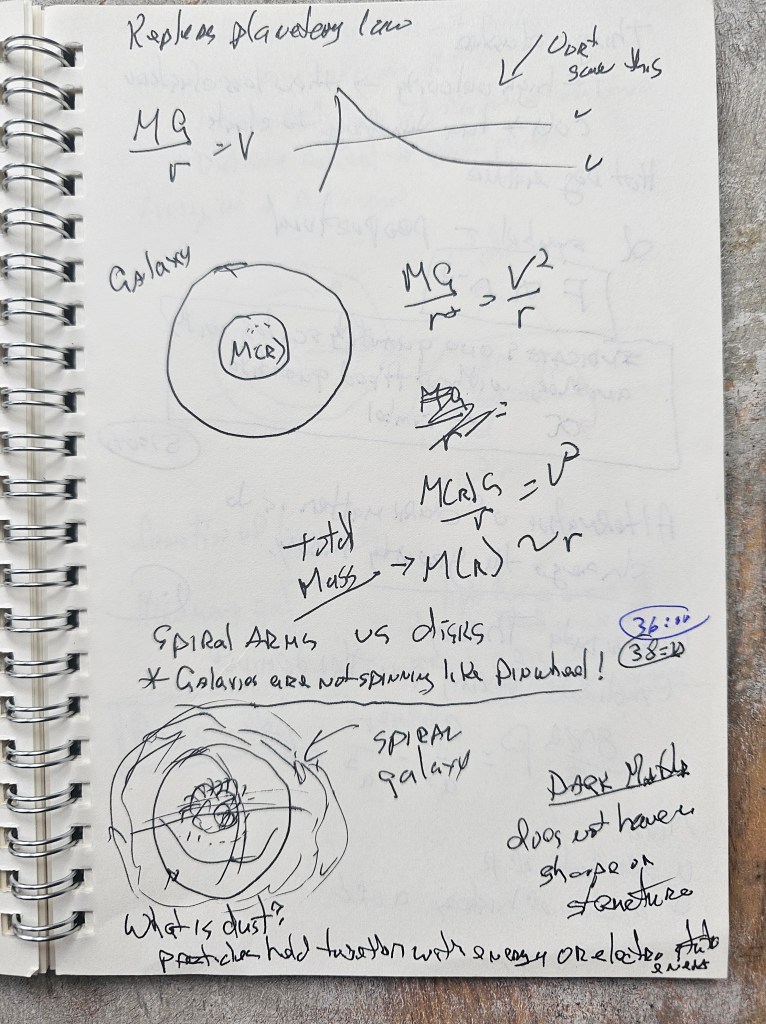 Keplers planetary law
MG
r
= V
Galaxy
M(R)
MG
r²
= V²
r
M(R)G
r
= V²
total
Mass → M(R) ~ r
SPIRAL ARMS vs disks
36:00
* Galaxies are not spinning like pinwheel!
SPIRAL
galaxy
DARK Matter
does not have
shape or
structure
What is dust?
particles held together with energy or electro